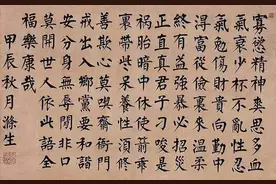 寡慾精神爽思多血
氣衰少杯不亂性忍
氣免傷財貴自勤中
淂富從儉裏來溫柔
終有益強暴必招災
善處真君子刁唆是
禍胎暗中休使箭乖
裏帶些呆養性須修
善欺心莫喫齋衙門
戒出入鄉黨要和諧
安分身無辱閒非口
莫開世人依此語全
福樂康哉
甲辰秋月滌生